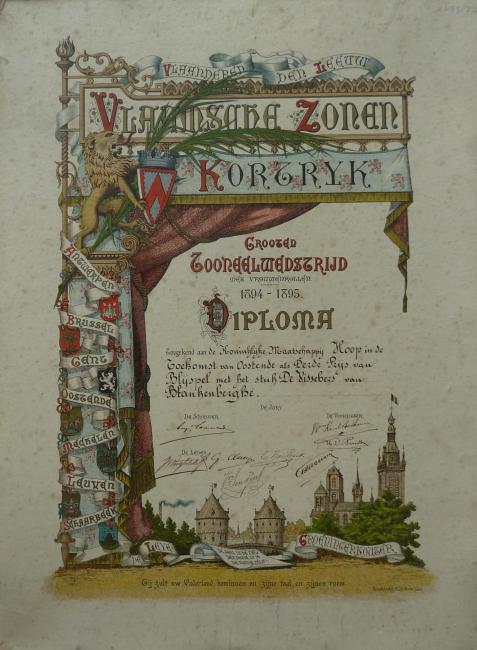 Vlaanderen den Leeuw
Vlaamsche Zonen
Kortryk
Grooten
Tooneelwedstrijd
met vrouwenrollen
1894 - 1895.
Diploma
Toegekend aan de Koninklijke Maatschappij Hoop in de
Toekomst van Oostende als Derde Prijs van
Blijspel met het stuk De Visschers van
Blankenberghe.
Antwerpen
Brussel
Gent
Oostende
Mechelen
Leuven
Schaarbeek
De Schrijver,
De Jury
De Voorzitter,
De Leden,
De Leye
Groeningerkouter
Gij zult uw Vaderland beminnen en zijne taal en zijnen roem.